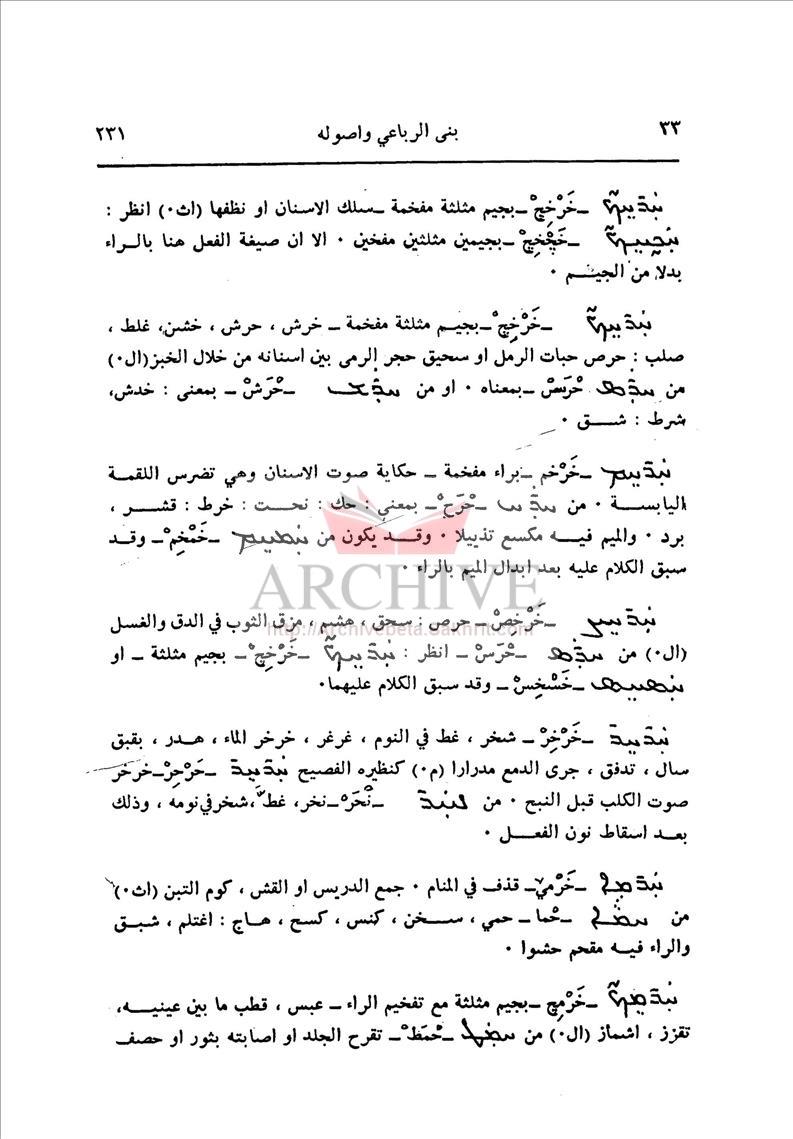 ٣٣ بنى الرباعي واصوله ٢٣١
ـخَرْخِجْ ـبجيم مثلثة مفخمة ـسلك الاسنان او نظفها (اث٠) انظر :
ـخَجْخِجْ ـبجيمين مثلثين مفخين ٠ الا ان صيغة الفعل هنا بالراء
بدلا من الجيم ٠
ـخَرْخِجْ ـبجيم مثلثة مفخمة ـ خرش ، حرش ، خشن، غلط ،
صلب : حرص حبات الرمل او سحيق حجر الرمى بين اسنانه من خلال الخبز(ال٠)
من ܚܪܣ حْرَسْ ـبمعناه ٠ او من ـحْرَشْ ـ بمعنى : خدش،
شرط : شق ٠
ـخَرْخم ـبراء مفخمة ـ حكاية صوت الاسنان وهي تضرس اللقمة
اليابسة ٠ من ـحْرَحْ ـ بمعنى : حك : نحت : خرط : قشر ،
برد ٠ والميم فيه مكسع تذييلا ٠ وقد يكون من ـخَمْخِمْ ـ وقد
سبق الكلام عليه بعد ابدال الميم بالراء ٠
ARCHIVE
ـخَرْخِصْ ـ حرص : سحق ، هشم ، مزق الثوب في الدق والغسل
http://Archivebeta.Sakhrit.com
(ال٠) من ܚܪܣ ـحْرَسْ ـ انظر : ـخَرْخِجْ ـ بجيم مثلثة ـ او
ـخَسْخِسْ ـ وقد سبق الكلام عليهما٠
ܚܪܚܪ ـخَرْخِرْ ـ شخر ، غط في النوم ، غرغر ، خرخر الماء ، هدر ، بقبق
سال ، تدفق ، جرى الدمع مدرارا (م٠) كنظيره الفصيح ܚܪܚܪ ـحَرْحِرْـخرخر
صوت الكلب قبل النبح ٠ من ܢܚܪ ـنْحَرْـنخر، غط ،شخرفي نومه ، وذلك
بعد اسقاط نون الفعل ٠
ـخَرْميْـ قذف في المنام ٠ جمع الدريس او القش ، كوم التبن (اث٠)
من ـحْما ـ حمي ، سخن ، كنس ، كسح ، هاج : اغتلم ، شبق
والراء فيه مقحم حشوا ٠
ـخَرْمِجْ ـبجيم مثلثة مع تفخيم الراء ـ عبس ، قطب ما بين عينيه،
تقزز ، اشماز (ال٠) من ܚܡܛ ـحْمَطْ ـ تقرح الجلد او اصابته بثور او حصف